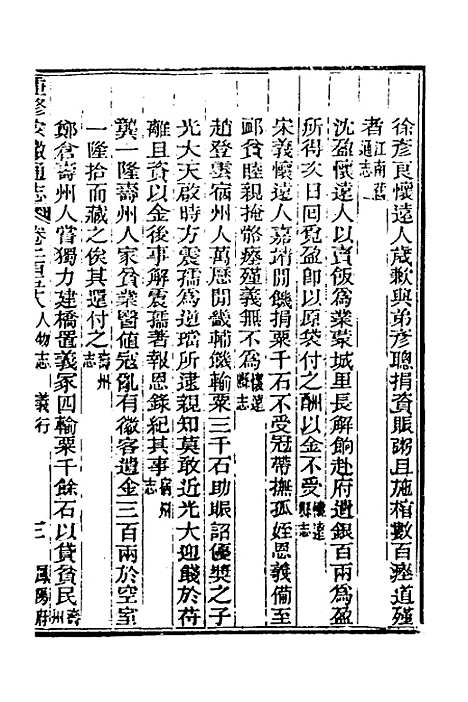 徐彦良懷遠人歲歉與弟彦聰捐資賑粥且施棺數百瘞道殣
者江南舊通志
沈盈懷遠人以賣飯為業蒙城里長解餉赴府遺銀百兩為盈
所得次日回覓盈即以原袋付之酬以金不受懷遠縣志
宋義懷遠人嘉靖閒饑捐粟千石不受冠帶撫孤姪恩義備至
䘏貧睦親掩骼瘞殣義無不為懷遠縣志
趙登雲宿州人萬歷閒畿輔饑輸粟三千石助賑詔優奬之子
光大天啟時方震孺為逆璫所逮親知莫敢近光大迎餞於苻
離且資以金後事解震孺著報恩錄紀其事宿州志
龔一隆壽州人家貧業醫值寇亂有徽客遺金三百兩於空室
一隆拾而藏之俟其還付之壽州志
鄭倉壽州人嘗獨力建橋置義冢四輸粟千餘石以貸貧民壽州
重修安徽通志 卷二百五十八 人物志 義行 三 鳳陽府